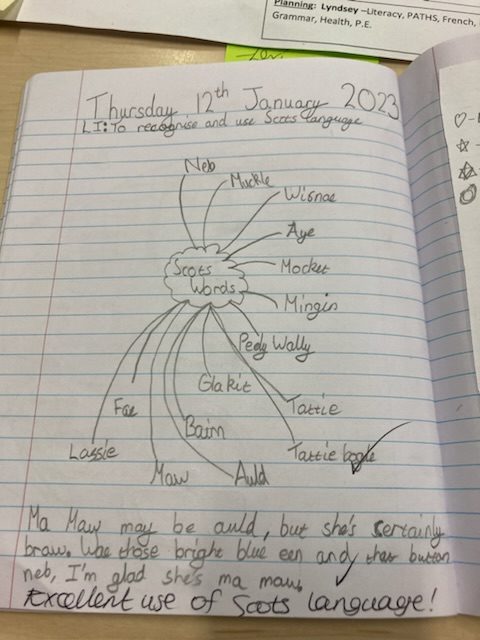 Planning: Lyndsey –Literacy, PATHS, French,
Grammar, Health, P.E.
Thursday 12th January 2023
LI: To recognise and use Scots language
Neb
Muckle
Wisnae
Aye
Mocket
Mingin
Scots
Words
Pedy Wally
Glakit
Tattie
Fae
Bairn
Tattie bogle
Lassie
Maw
Auld
Ma Maw may be auld, but she's certainly
braw. Wae those bright blue een and that button
neb, I'm glad she's ma maw.
Excellent use of Scots language!